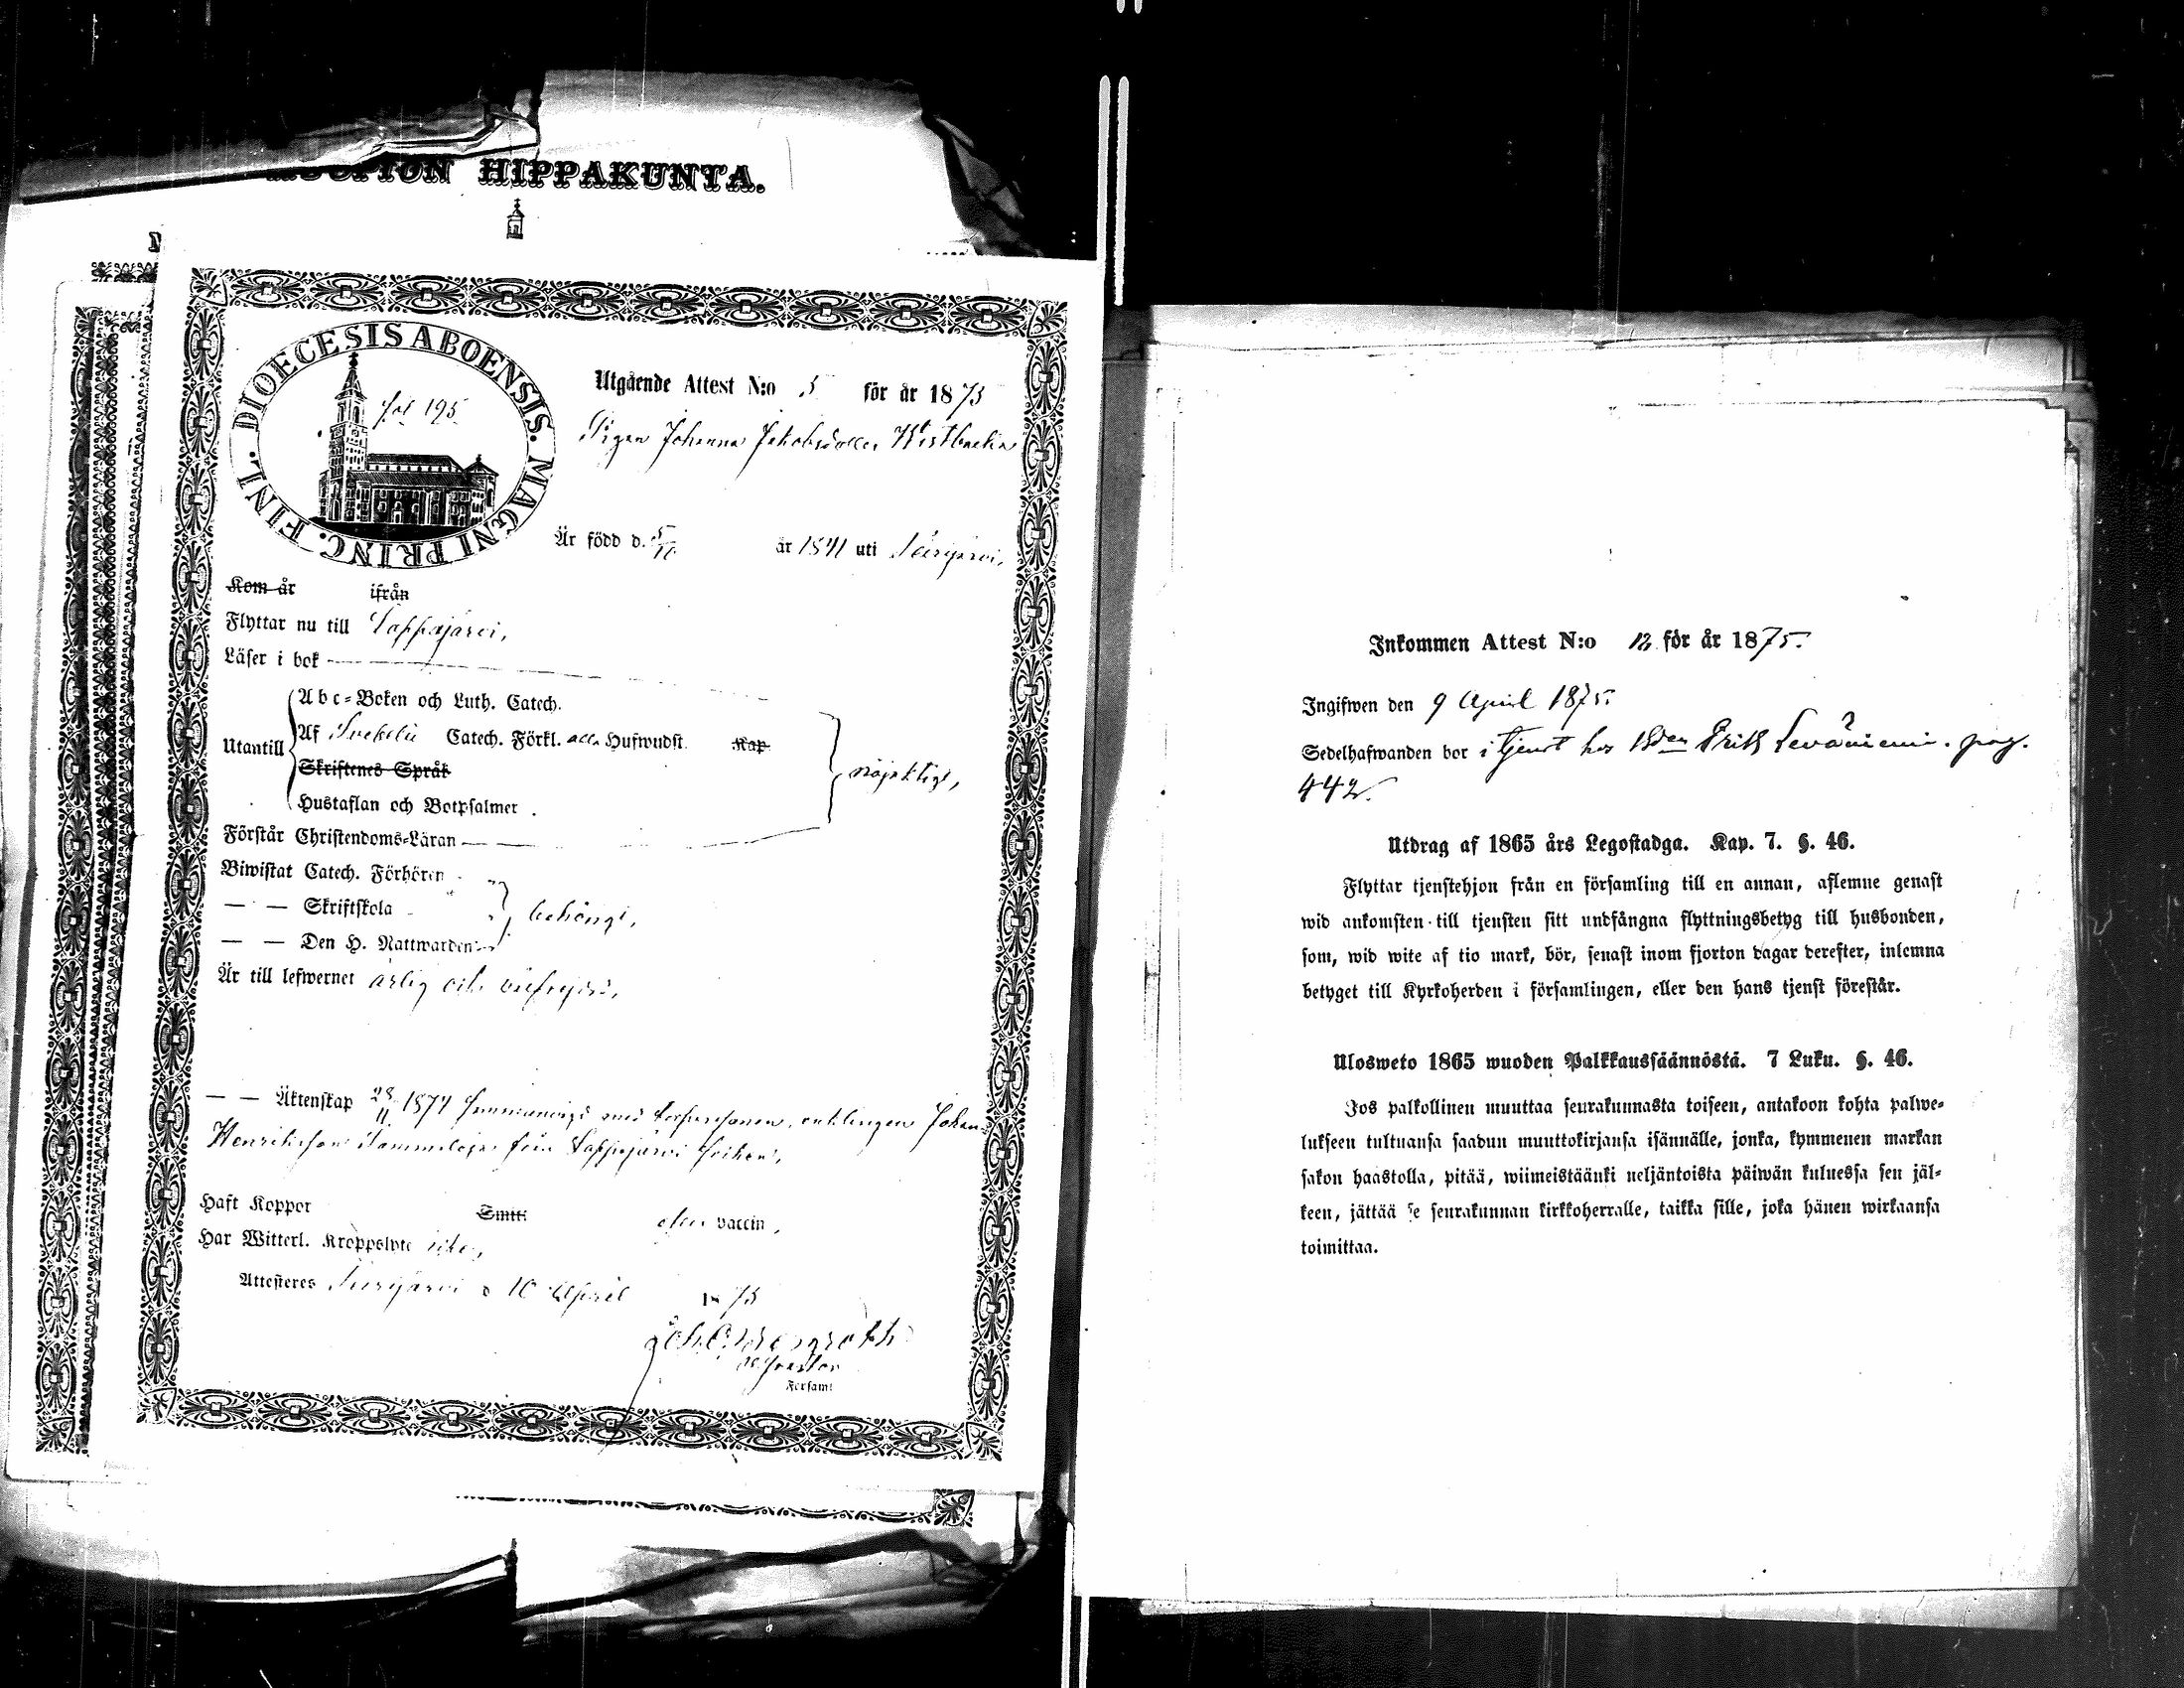 HIPPAKUNTA.
DIOECESIS ABOENSIS. MAGNI PRINC. FINL.
fol 195
Utgående Attest N:o 5 för år 1875
Pigan Johanna Jakobsdotter Westbacka
Är född d. 5/10 år 1841 uti
Kom år ifrån
Flyttar nu till Lappajärvi,
Läser i bok
Abc-Boken och Luth. Catech.
Utantill Af Svebelii Catech. Förkl. Hufwudst. Kap
Skriftenes Språk
Hustaflan och Botpsalmer.
nöjaktigt,
Förstår Christendoms-Läran
Biwistat Catech. Förhören
— — Skriftskola
— — Den H. Nattwarden
behörigt,
Är till lefwernet ärlig och
— — Äktenskap 28/11 1874 med enklingen Johan
Henriksson från Lappajärvi
Haft Koppor Smitt. vaccin,
Har Witterl. Kroppslyte icke,
Attesteres d 10 April 1875
Forsaml
Inkommen Attest N:o 12 för år 1875.
Ingifwen den 9 April 1875.
Sedelhafwanden bor i tjenst hos Bden Erik Levaniemi. pag.
442.
Utdrag af 1865 års Legostadga. Kap. 7. §. 46.
Flyttar tjenstehjon från en församling till en annan, aflemne genast
wid ankomsten till tjensten sitt undfångna flyttningsbetyg till husbonden,
som, wid wite af tio mark, bör, senast inom fjorton dagar derefter, inlemna
betyget till Kyrkoherden i församlingen, eller den hans tjenst förestår.
Ulosweto 1865 wuoden Palkkaussäännöstä. 7 Luku. §. 46.
Jos palkollinen muuttaa seurakunnasta toiseen, antakoon kohta palwe-
lukseen tultuansa saadun muuttokirjansa isännälle, jonka, kymmenen markan
sakon haastolla, pitää, wiimeistäänki neljäntoista päiwän kuluessa sen jäl-
keen, jättää se seurakunnan kirkkoherralle, taikka sille, joka hänen wirkaansa
toimittaa.